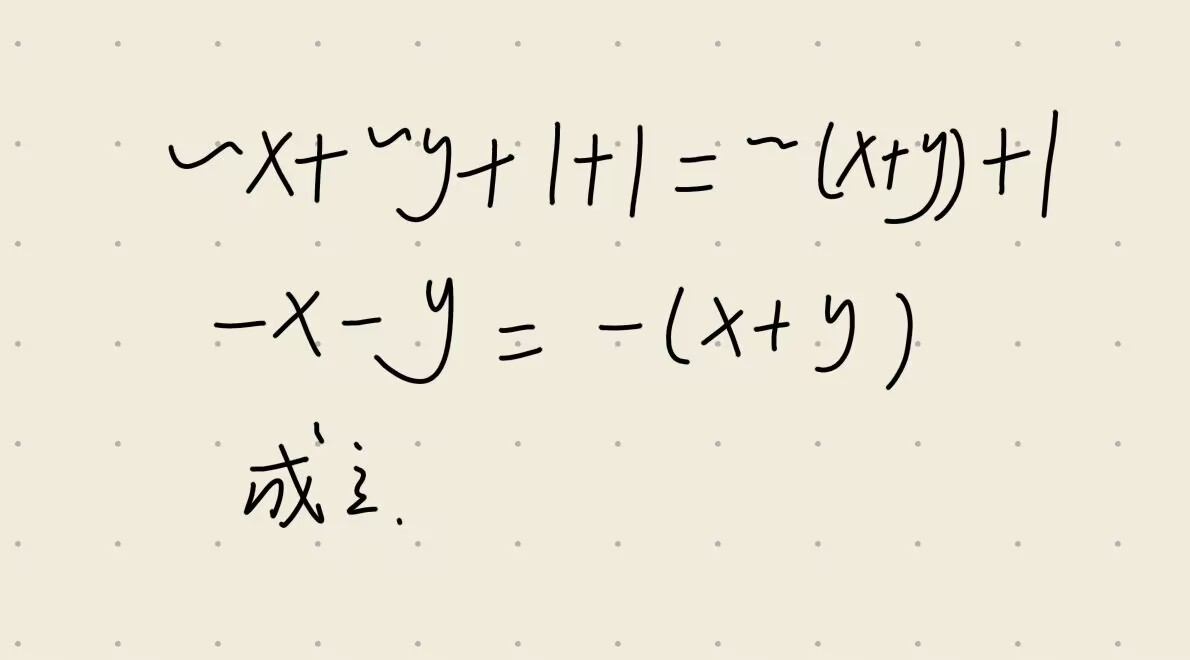 ~x+~y+1+1=~(x+y)+1
-x-y=-(x+y)
成立.